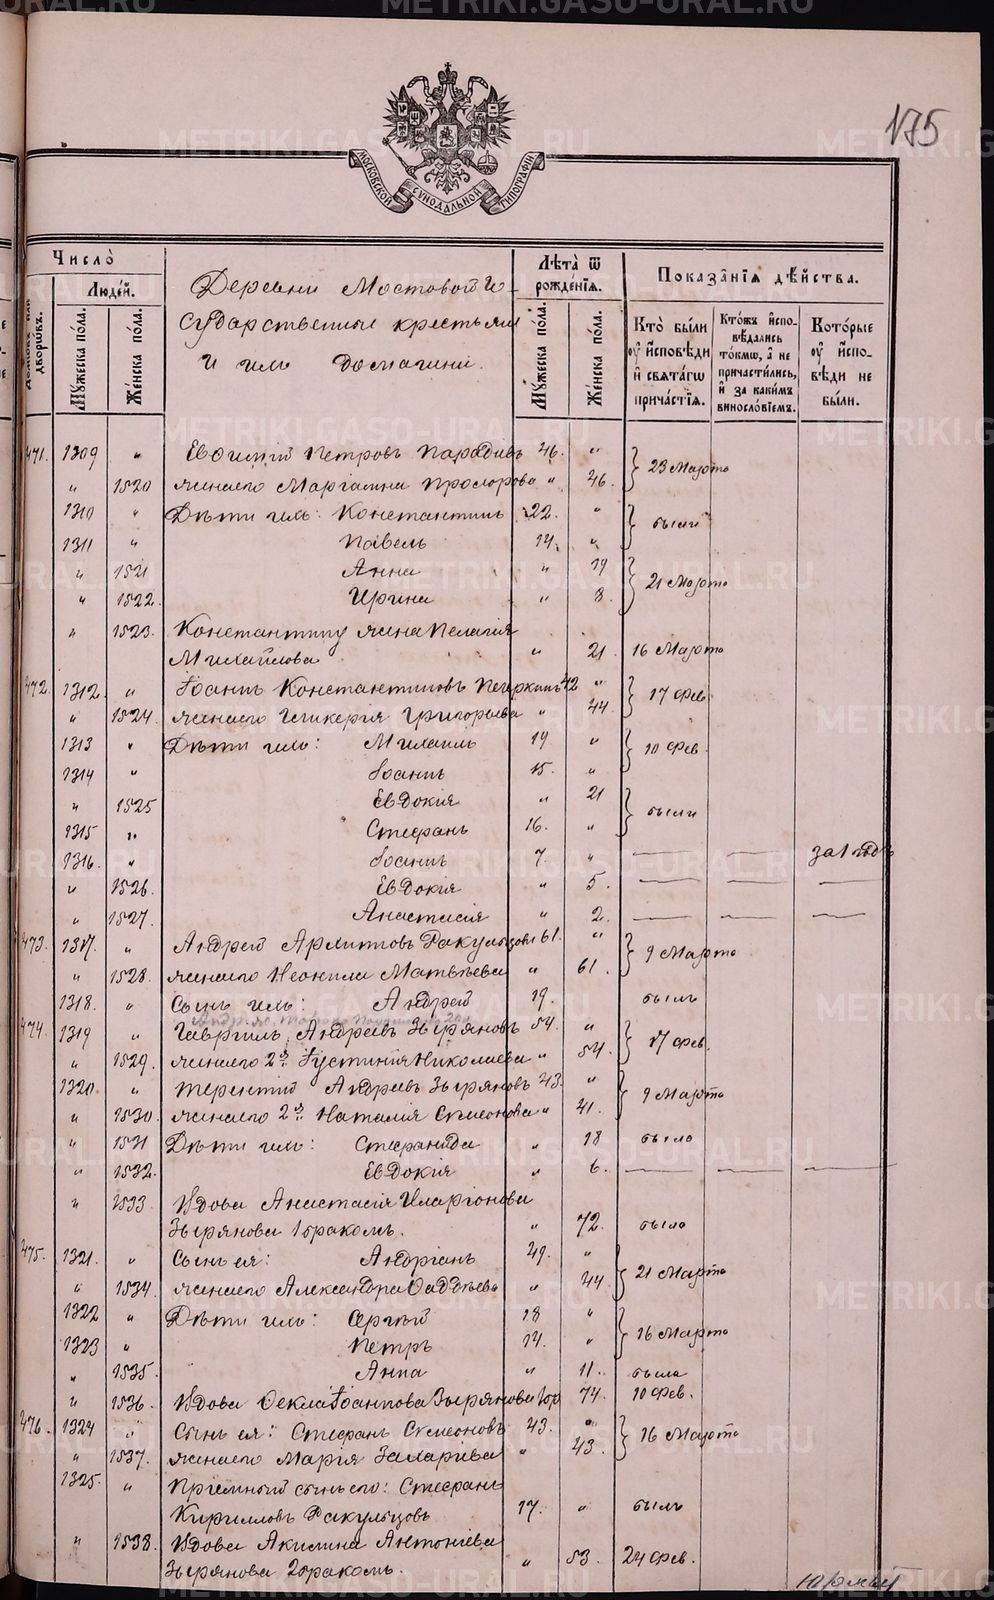 METRIKI.GASO-URAL.RU
175
МОСКОВСКОЙ СѴНОДАЛЬНОЙ ТИПОГРАФІИ
Число̀
Людей.
Мꙋжеска пола.
Женска пола.
Деревни Мостовой Го-
сударственные крестьяне
и ихъ домашніи.
Лѣта ѿ рожденїѧ.
Мꙋжеска пола.
Женска пола.
Показанїѧ дѣйства.
Кто были оу исповѣди и свѧтагѡ причастїѧ.
Ктожъ исповѣдались токмѡ, а не причастились, и за какимъ винословїемъ.
Которые оу исповѣди не были.
471. 1309 " Евѳимій Петровъ 46. " 23 Марта
" 1520 жена его Маріамна Прохорова " 46.
1310 " Дѣти ихъ: Константинъ 22. " были
1311 " Павелъ 14. "
" 1521 Анна " 19 21 Марта
" 1522. Ирина " 8.
" 1523. Константину жена Пелагія
Михайлова " 21. 16 Марта
472. 1312. " Іоаннъ Константиновъ 42 " 17 Фев.
" 1524. жена его Гликерія Григорьева " 44.
1313 " Дѣти ихъ: Михаилъ 19 " 10 Фев.
1314 " Іоаннъ 15. "
" 1525 Евдокія " 21 были
1315 " Стефанъ 16. "
1316. " Іоаннъ 7. " — — за 1 годъ
" 1526. Евдокія " 5. — — —
" 1527. Анастасія " 2. — — —
473. 1317. " Андрей Ракульцовъ 61. " 9 Марта
" 1528. жена его Неонила Матвѣева " 61.
1318. " Сынъ ихъ: Андрей 19. " былъ
474. 1319 " Гавріилъ Андреевъ Зыряновъ 54. " 17 Фев.
" 1529. жена его 2я Іустинія Николаева " 54.
1320. " Терентій Андреевъ Зыряновъ 43. " 9 Марта
" 1530. жена его 2я Наталія Симеонова " 41.
" 1531 Дѣти ихъ: Стефанида " 18 была
" 1532. Евдокія " 6. — — —
" 1533 Вдова Анастасія Иларіонова
Зырянова 1 бракомъ. " 72. была
475. 1321. " Сынъ ея: Андріанъ 49. " 21 Марта
" 1534. жена его Александра Ѳаддѣева " 44
1322 " Дѣти ихъ: Сергѣй 18 " 16 Марта
1323 " Петръ 14. "
" 1535. Анна " 11. была
" 1536. Вдова Ѳекла Іоаннова Зырянова 1бр 74. 10 Фев.
476. 1324 " Сынъ ея: Стефанъ Симеоновъ 43. " 16 Марта
" 1537. жена его Марія Захарьева " 43.
1325. " Пріемный сынъ его: Стефанъ
Кирилловъ Ракульцовъ 17. " былъ
" 1538. Вдова Акилина Антоніева
Зырянова 2 бракомъ. " 53. 24 Фев.